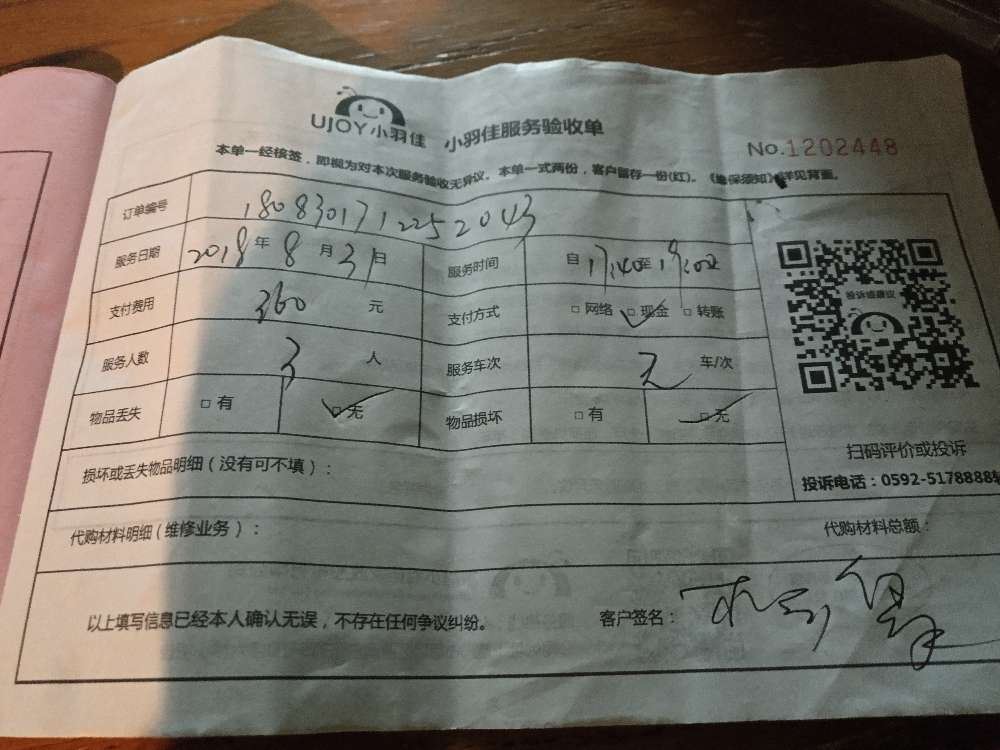 UJOY小羽佳 小羽佳服务验收单
No.1202448
本单一经核签，即视为对本次服务验收无异议。本单一式两份，客户留存一份(红)。《维保须知》详见背面。
订单编号 1808301712252043
服务日期 2018年8月31日 服务时间 自17:40至19:00
支付费用 360 元 支付方式 □网络 □现金 □转账
服务人数 3 人 服务车次 无 车/次
物品丢失 □有 □无 物品损坏 □有 □无
投诉或建议
扫码评价或投诉
投诉电话：0592-5178888转
损坏或丢失物品明细（没有可不填）：
代购材料明细（维修业务）： 代购材料总额：
以上填写信息已经本人确认无误，不存在任何争议纠纷。 客户签名：